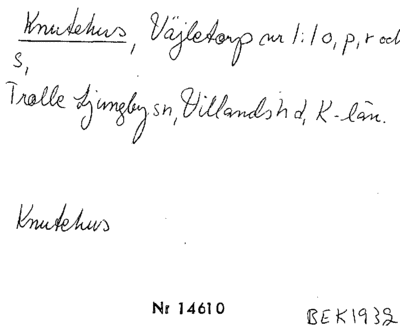 Knutehus, Väjletorp nr 1:1 o, p, r och
s,
Trolle Ljungby sn, Villands hd, K-län.
Knutehus
Nr 14610
BEK1932